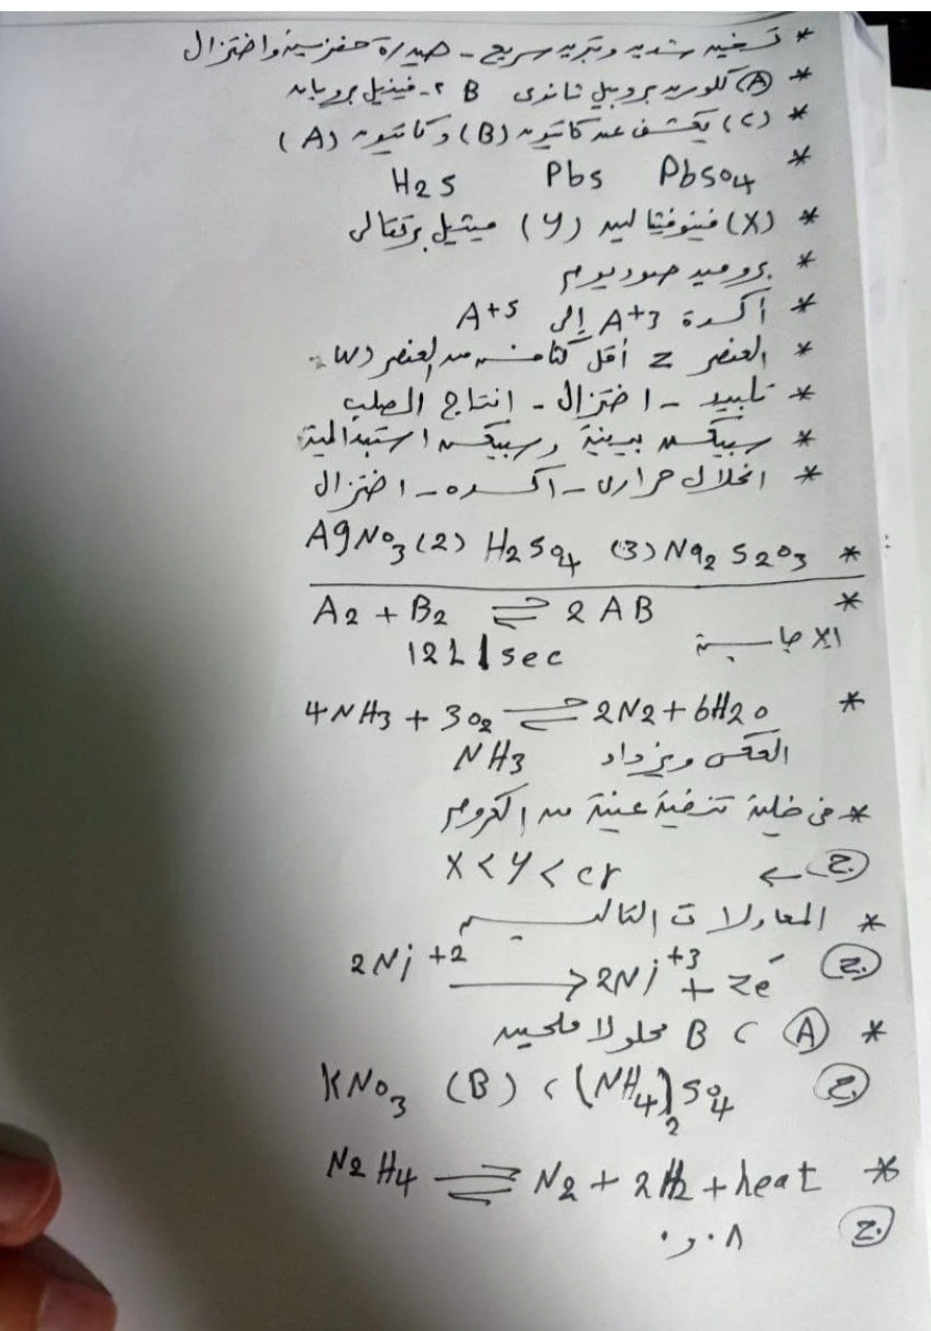 * تسخين شديد وتبريد سريع - هيدرة حفزية واختزال
* (A) كلوريد بروبيل ثانوى B ٢-فينيل بروبان
* (C) يكشف عن كاتيون (B) وكاتيون (A)
* H2S PbS PbSO4
* (X) فينوفيثالين (Y) ميثيل برتقالى
* بروميد صوديوم
* أكسدة A+3 إلى A+5
* العنصر Z أقل كثافة من العنصر (W)
* تلبيد - اختزال - انتاج الصلب
* سبيكة بينية وسبيكة استبدالية
* انحلال حرارى - اكسده - اختزال
* AgNO3 (2) H2SO4 (3) Na2S2O3
* A2 + B2 ⇌ 2AB
الاجابة 12L/sec
* 4NH3 + 3O2 ⇌ 2N2 + 6H2O
العكس ويزداد NH3
* فى خلية تنقية عينة من الكروم
ج. ← X < Y < Cr
* المعادلات التالية
ج. 2Ni+2 → 2Ni+3 + 2e-
* A ، B محلولا ملحين
ج. (NH4)2SO4 ، (B) KNO3
* N2H4 ⇌ N2 + 2H2 + heat
ج. ٠,٠٨